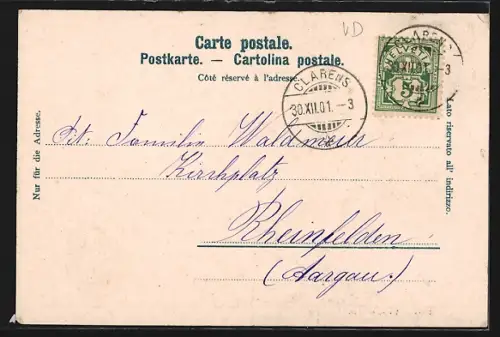 VD
Carte postale.
Postkarte. — Cartolina postale.
Côté réservé à l'adresse.
CLARENS
30.XII.01. – 3
CLARENS
30.XII.01. – 3
HELVETIA
5
Nur für die Adresse.
Lato riservato all' indirizzo.
Tit. Familie Waldmeier
Kirchplatz
Rheinfelden
(Aargau.)